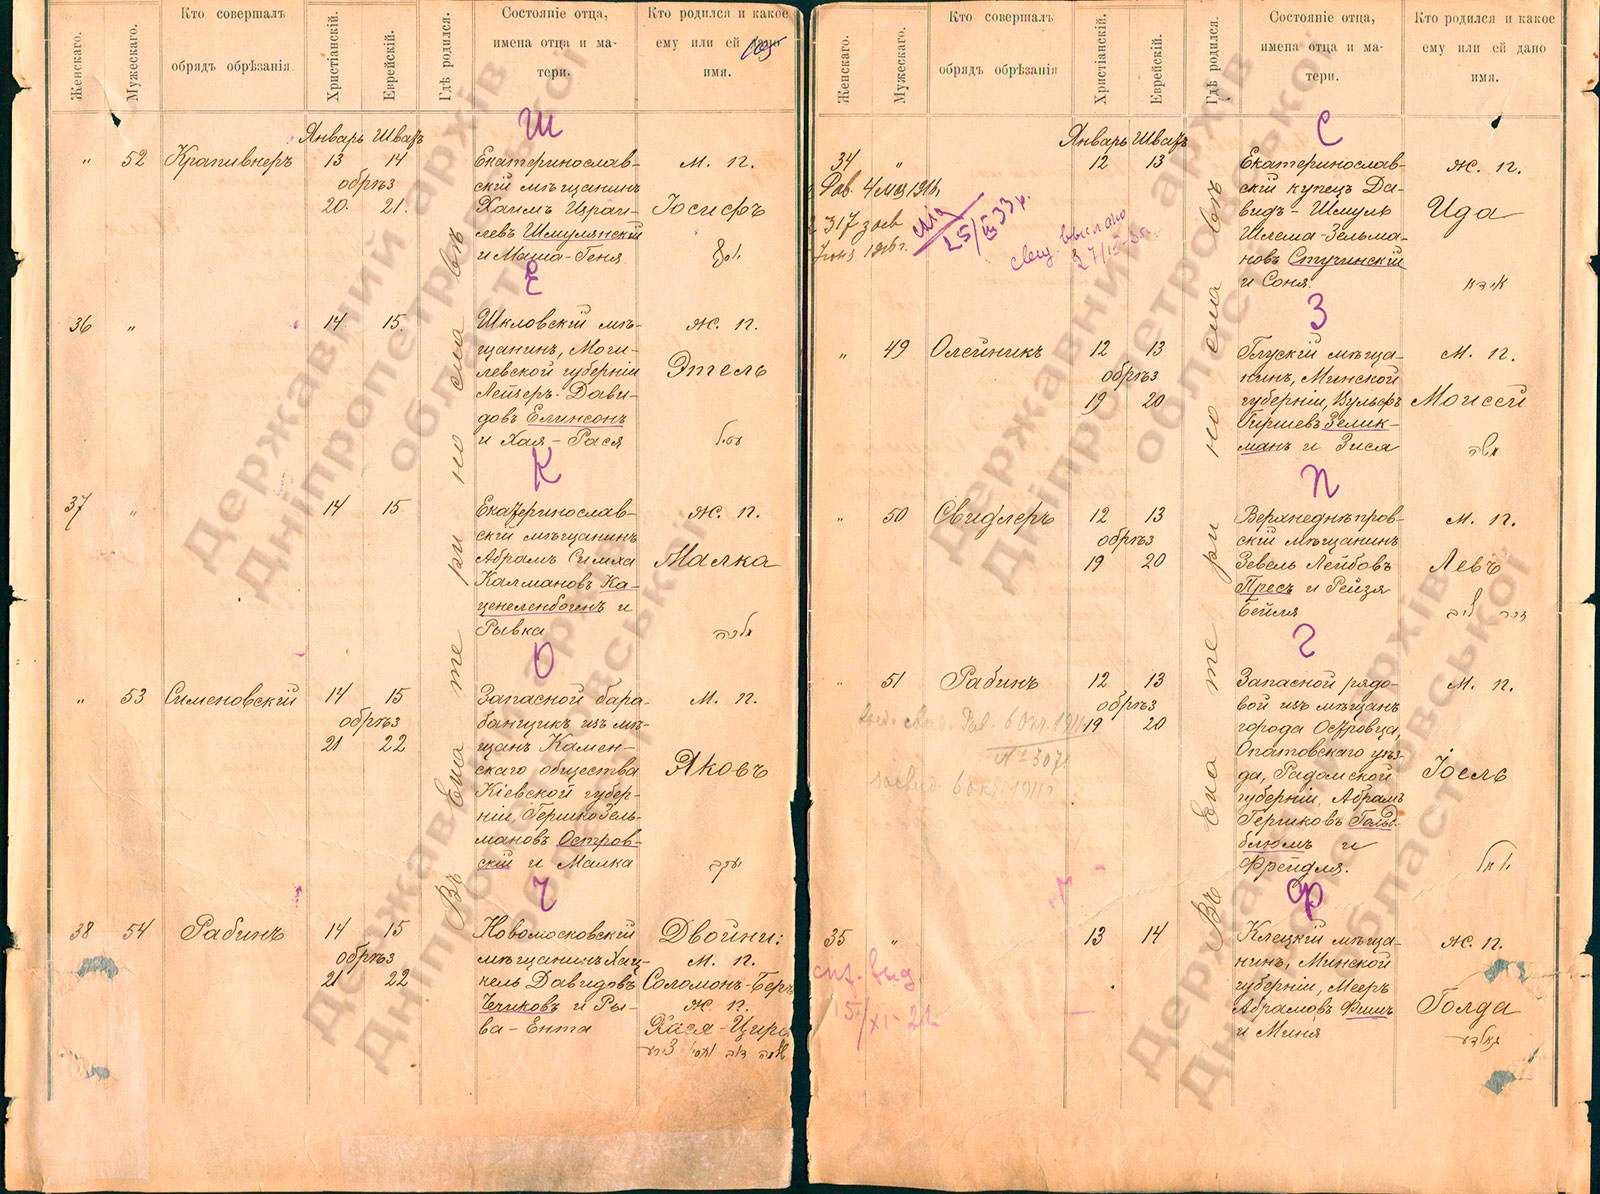 Женскаго.
Мужескаго.
Кто совершалъ
обрядъ обрѣзанія
Христіанскій.
Еврейскій.
Гдѣ родился.
Состояніе отца,
имена отца и ма-
тери.
Кто родился и какое
ему или ей дано
имя.
Въ Екатеринославѣ
Январь Шватъ
Ш
" 52 Крапивнеръ 13 14
обрѣз
20. 21.
Екатеринослав-
скій мѣщанинъ
Хаимъ Израи-
левъ Шмулянскій
и Маша-Геня
м. п.
Іосифъ
יוסף
Е
36 " 14 15.
Шкловскій мѣ-
щанинъ, Моги-
левской губерніи
Лейзеръ-Дави-
довъ Елинсонъ
и Хая-Рася
ж. п.
Этель
עטיל
К
37 " 14 15
Екатеринослав-
скій мѣщанинъ
Абрамъ Симха
Калмановъ Ка-
ценеленбогинъ и
Рывка
ж. п.
Малка
מלכה
О
" 53 Сименовскій 14 15
обрѣз
21 22
Запасной бара-
банщикъ изъ мѣ-
щанъ Камен-
скаго общества
Кіевской губер-
ніи, Гершко Зель-
мановъ Остров-
скій и Малка
м. п.
Яковъ
יעקב
Ч
38 54 Рабинъ 14 15
обрѣз
21 22
Новомосковскій
мѣщанинъ Хац-
кель Давидовъ
Чечиковъ и Ры-
ва-Ента
Двойни:
м. п.
Соломонъ-Беръ
ж. п.
Хася-Цире
Женскаго.
Мужескаго.
Кто совершалъ
обрядъ обрѣзанія
Христіанскій.
Еврейскій.
Гдѣ родился.
Состояніе отца,
имена отца и ма-
тери.
Кто родился и какое
ему или ей дано
имя.
Въ Екатеринославѣ
Январь Шватъ
С
34 " 12 13
Екатеринослав-
скій купецъ Да-
видъ-Шмуль
Шлема-Зельма-
новъ Стучинскій
и Соня.
ж. п.
Ида
אידא
25/III 33 г.
З
" 49 Олейникъ 12 13
обрѣз
19 20
Глускій мѣща-
нинъ, Минской
губерніи, Вульфъ
Гиршевъ Зелик-
манъ и Зися
м. п.
Моисей
משה
П
" 50 Свидлеръ 12 13
обрѣз
19 20
Верхнеднѣпров-
скій мѣщанинъ
Зевель Лейбовъ
Пресъ и Рейзя
Бейля
м. п.
Левъ
Г
" 51 Рабинъ 12 13
обрѣз
19 20
Запасной рядо-
вой изъ мѣщанъ
города Островца,
Опатовскаго уѣз-
да, Радомской
губерніи, Абрамъ
Гершковъ Гольд-
блюмъ и
Фрейдля.
м. п.
Іоель
יואל
Ф
35 " 13 14
Клецкій мѣща-
нинъ, Минской
губерніи, Мееръ
Абрамовъ Фишъ
и Миня
ж. п.
Голда
גאלדע
15/XI-22
Державний архів
Дніпропетровської
області